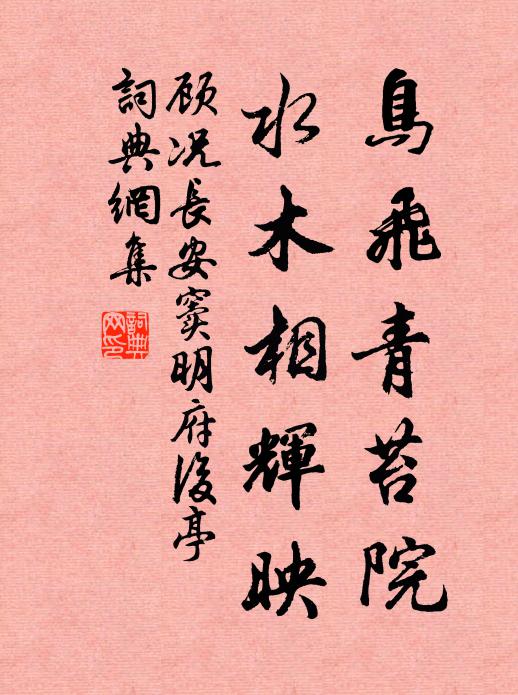 鳥飛青苔院
水木相輝映
顾况長安竇明府後亭
詞典網集
詞典網印